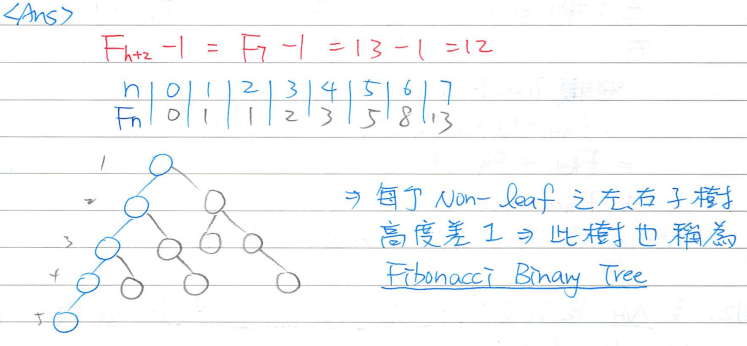 <Ans>
F_{h+2} -1 = F_7 -1 = 13-1 = 12
n | 0 | 1 | 2 | 3 | 4 | 5 | 6 | 7
Fn | 0 | 1 | 1 | 2 | 3 | 5 | 8 | 13
1
2
3
4
5
⇒ 每个 Non-leaf 之左右子樹
高度差1 ⇒ 此樹也稱為
Fibonacci Binary Tree